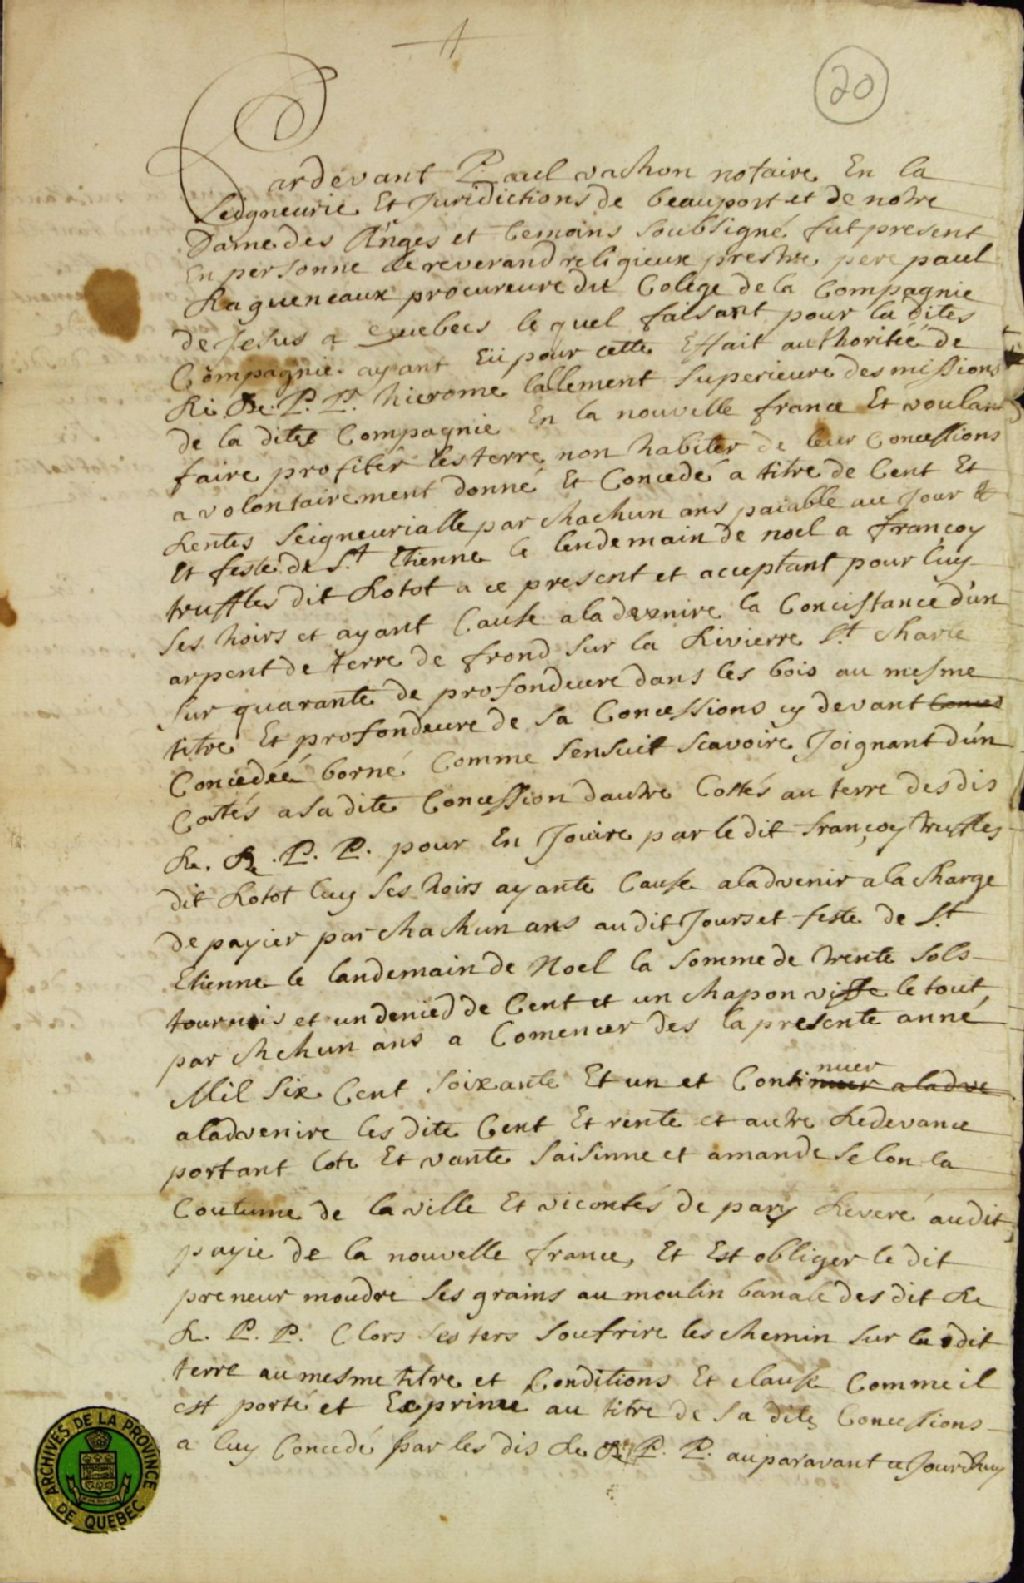 20
Pardevant Paul vachon notaire En la
Seigneurie Et Juridictions de beauport et de notre
Dame des Anges et temoins soubsigné fut present
En personne le reverand religieux prestre pere paul
Ragueneaux procureure du Colege de la Compagnie
de Jesus a Quebecs lequel faisant pour la dites
Compagnie ayant Eü pour cette Effait authoritée de
R. P. P. hierome lallement superieure des missions
de la dite Compagnie En la nouvelle france Et voulan
faire profiter les terre non habiter de leur Concessions
a volontairement donné Et Concedé a titre de Cent Et
Rentes Seigneurialle par chachun ans paiable au Jour
Et feste de St Etienne le lendemain de noel a françoy
truffles dit Rotot a ce present et acceptant pour luy
ses hoirs et ayant Cause a ladvenire la Concistance d'un
arpent de terre de frond sur la Rivierre St Charle
sur quarante de profondeure dans les bois au mesme
titre Et profondeure de sa Concessions cy devant
Concedéé borné Comme sensuit scavoire Joignant d'un
Costés a sa dite Concession dautre Costés au terre des dis
R. R. P. P. pour En Jouire par le dit françoy truffles
dit Rotot luy ses hoirs ayante Cause a ladvenir a la charge
de payier par chachun ans au dit Jours et feste de St
Etienne le landemain de Noel la somme de trente sols
tournois et un denied de Cent et un chapon viffe le tout
par chchun ans a Comencer des la presente anné
Mil six Cent soixante Et un et Continuer a ladve
nuer
a ladvenire les dite Cent Et rente et autre Redevance
portant lots Et vante saisinne et amande selon la
Coutume de la ville Et vicontés de pary Reveré au dit
payie de la nouvelle france, Et Est obliger le dit
preneur moudre ses grains au moulin banale des dit R.
R. P. P. Clors ses ters soufrire les chemin sur la dit
terre au mesme titre et Conditions Et clause Comme il
est porté et Exprime au titre de sa dite Concessions
a luy Concedé par les dis R. R. P. P. auparavant ce Jourdhuy
ARCHIVES DE LA PROVINCE DE QUEBEC